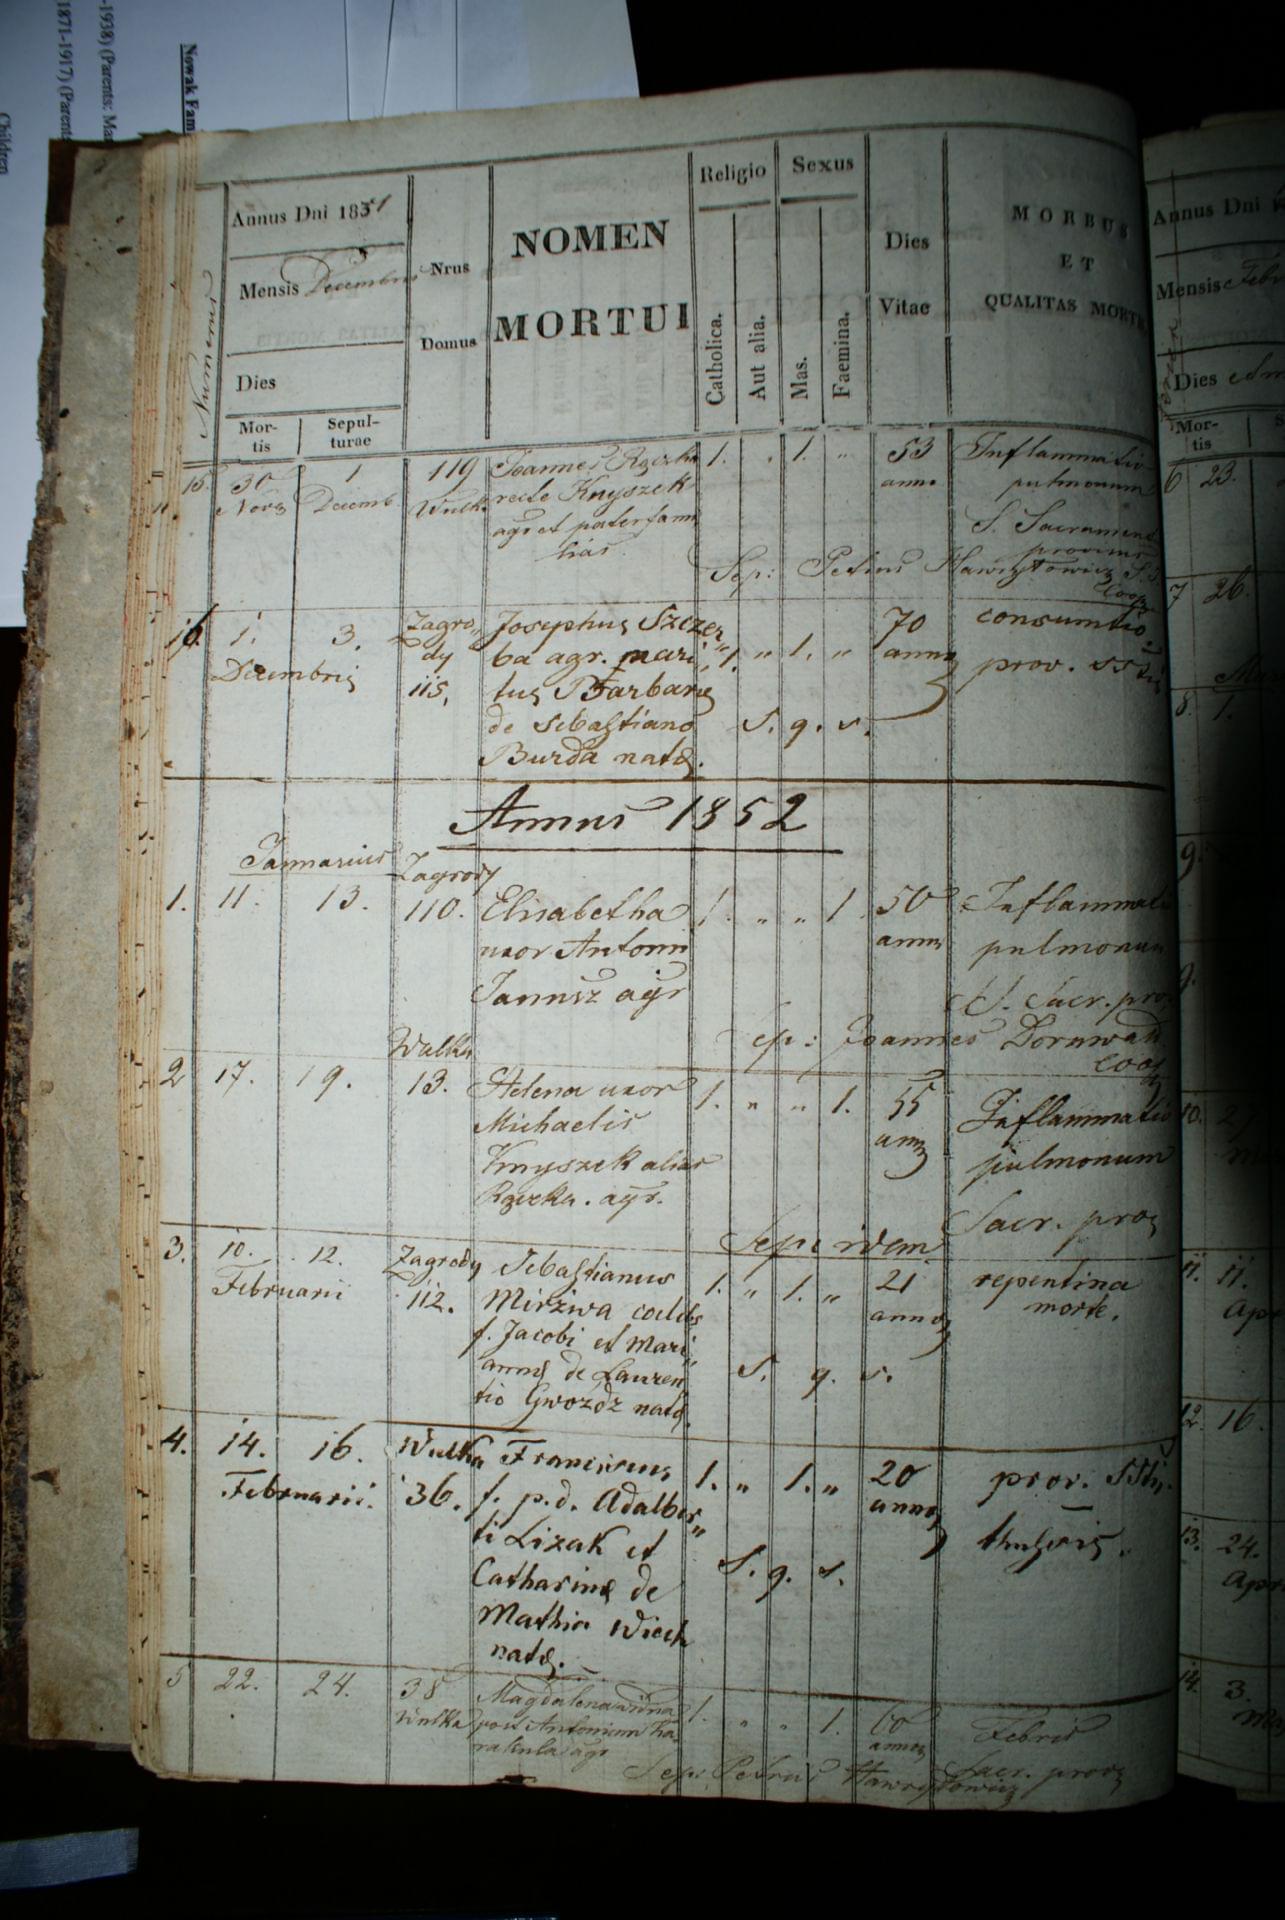 Nowak Fam
-1938) (Parents: Mar
1871-1917) (Parents
Children
Annus Dni 1851
Mensis Decembris
Dies
Mortis
Sepulturae
Numerus
Nrus
Domus
NOMEN
MORTUI
Religio
Catholica.
Aut alia.
Sexus
Mas.
Faemina.
Dies
Vitae
MORBUS
ET
QUALITAS MORTIS
15. 30 1 119 Joannes Rączka 1. „ 1. „ 53 Inflammatio
Novb Decemb. Wulka recte Knyszek anno pulmonum
agr et paterfami S. Sacrament
lias. provisus
Sep: Petrus Hawryłowicz
Coop
16. 1. 3. Zagro„ Josephus Szczer„ 70 consumtio.
dy ba agr. mari„ 1. „ 1. „ annor
Decembris 115, tus Barbarae prov. SStis
de Sebastiano S. q. s.
Burda natae.
Annus 1852
Januarius Zagrody
1. 11. 13. 110. Elisabetha 1. „ „ 1. 50 Inflammatio
uxor Antonii annor pulmonum
Janusz agr S. Sacr. pro.
Sep: Joannes Dornwald
Coop
Wulka
2 17. 19. 13. Helena uxor 1. „ „ 1. 55 Inflammatio
Michaelis ann pulmonum
Knyszek alias
Rączka. agr. Sacr. prov
Sep: idem
3. 10. 12. Zagrody Sebastianus 1. „ 1. „ 21 repentina
Februarii 112. Mirziwa coelebs annor morte.
f. Jacobi et Mari„
annae de Lauren S. q. s.
tio Gwoźdz natae.
4. 14. 16. Wulka Franciscus 1. „ 1. „ 20 prov. SStis.
Februarii. 36. f. p.d. Adalber„ annor
ti Lizak et
Catharinae de S. q. s.
Mathia Wiech
natae.
5 22. 24. 38 Magdalena vidua 1. „ „ 1. 60 Febris
Wulka post Antonium Ka„ annor
rakula agr Sacr. prov
Sep: Petrus Hawryłowicz
Annus Dni
Mensis Febr
Dies
Mortis
6 23.
7 26.
8. 1.
9.
10. 27
11. 11.
Apr
12. 16.
13. 24.
Apr
14. 3.